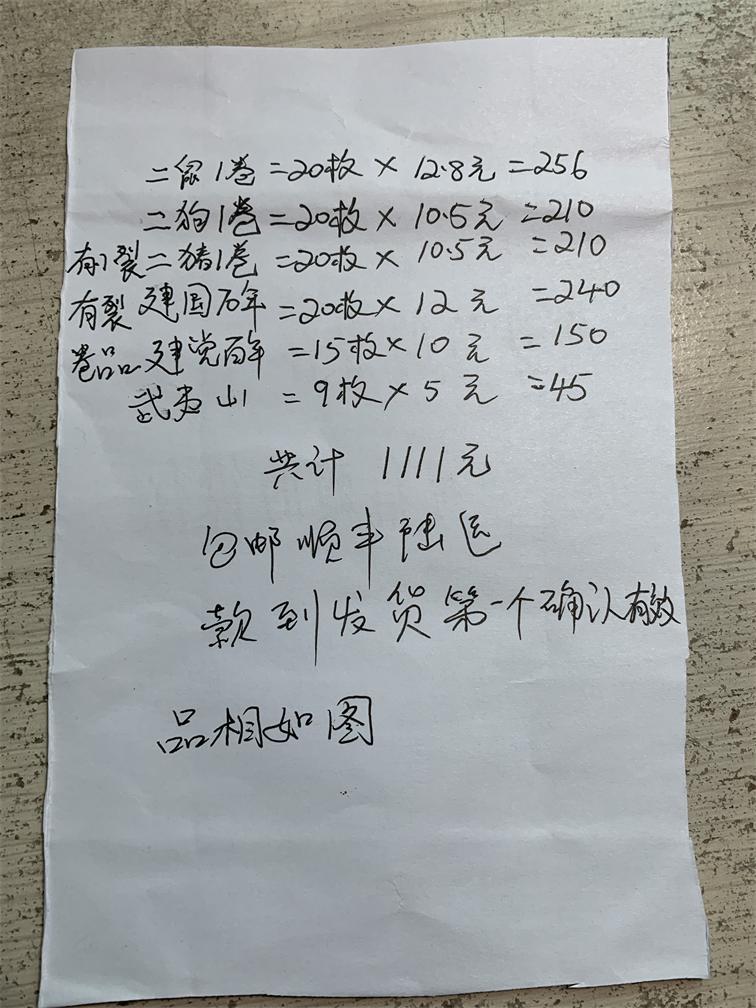 二鼠1卷=20枚×12.8元=256
二狗1卷=20枚×10.5元=210
有1裂二猪1卷=20枚×10.5元=210
有裂建国70年=20枚×12元=240
卷品建党百年=15枚×10元=150
武夷山=9枚×5元=45
共计1111元
包邮顺丰陆运
款到发货第一个确认有效
品相如图